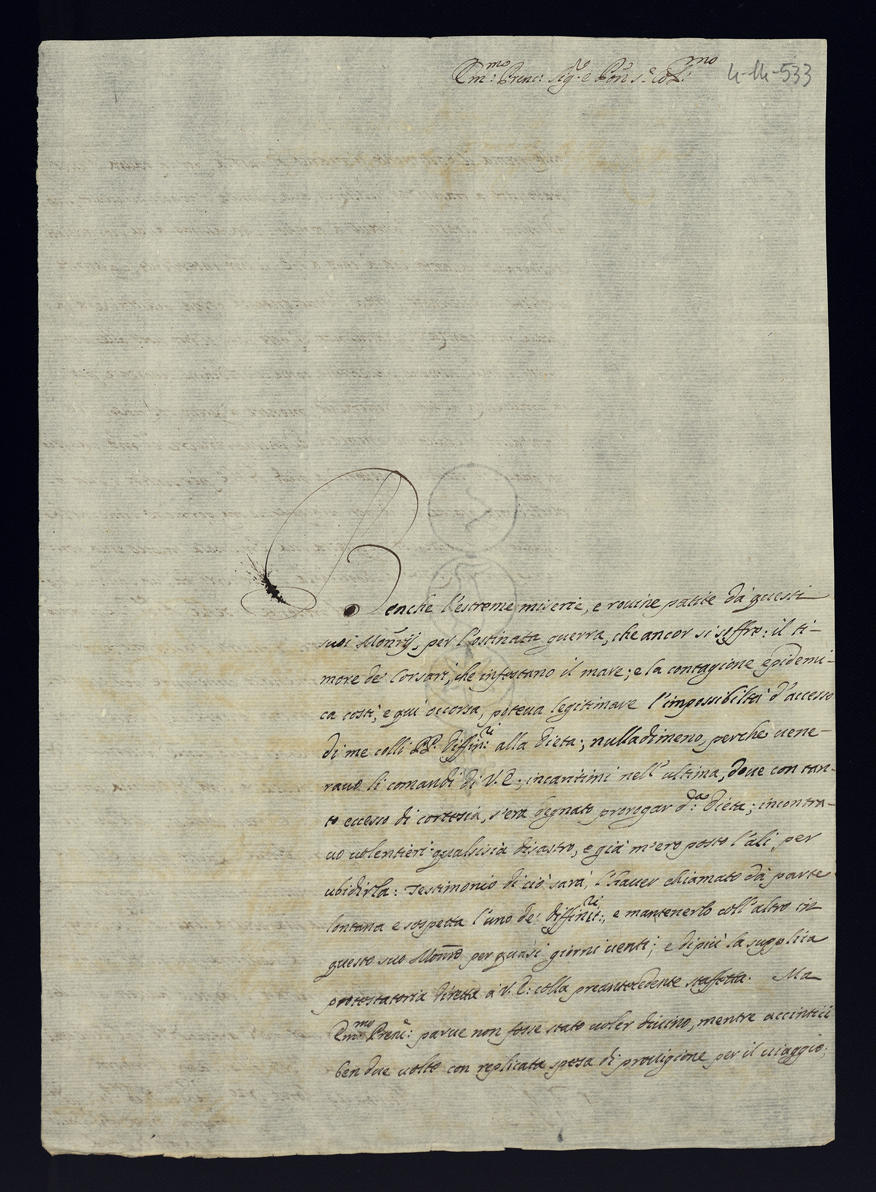 Em.mo Prenc: Sig.e e Pron s.e Col.mo
4-14-533
Benche l'estreme miserie, e rouine patite dà questi
suoi Mon.rij, per l'ostinata guerra, che ancor si soffre: il ti-
more de Corsari, che infestano il mare; e la contagione epidemi-
ca costì, e quì occorsa, poteua legitimare l'impossibiltà d'accesso
di me colli PP. Diffin.ri alla dieta; nulladimeno, perche uene-
rauo li comandi di V.E., incaritimi nell'ultima, doue con tan-
to eccesso di cortesia, s'era degnato prorogar d.a dieta; incontra-
uo uolentieri qualsisia disastro, e già m'ero posto l'ali, per
ubidirla: Testimonio di ciò sarà, l'hauer chiamato dà parte
lontana e sospetta l'uno de' Diffinit.ri, e mantenerlo coll'altro in
questo suo Mon.ro per quasi giorni uenti; e dipiù la supplica
protestatoria diretta à V.E: colla preantecedente staffetta. Ma
Em.mo Prenc.e: parue non fosse stato uoler diuino, mentre accintici
ben due uolte con replicata spesa di prouigione per il uiaggio;